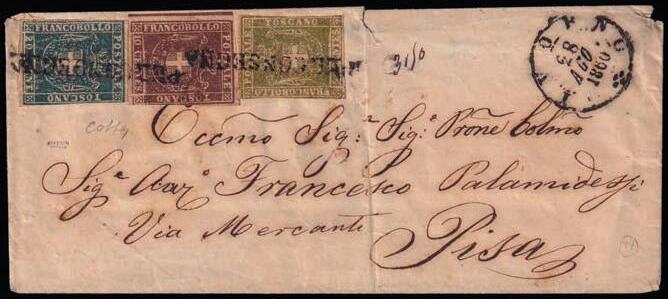 FRANCOBOLLO
POSTALE
TOSCANO
FRANCOBOLLO
POSTALE
TOSCANO
TOSCANO
FRANCOBOLLO
PER CONSEGNA
LIVORNO
28
AGO
1860
Eccmo Sigr: Sigr: Prone Colmo
Sige Avvo Francesco Palamidessi
Via Mercanti
Pisa